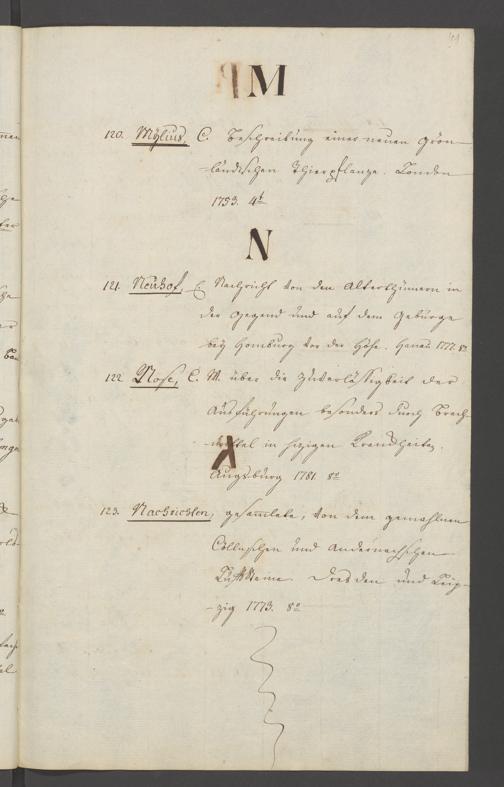 M
120. Mylius, C. Beschreibung einer neuen Grön-
ländischen Thierpflanze. London
1753. 4t
N
121. Neuhof, E. Nachricht von den Alterthümern in
der Gegend und auf dem Gebürge
bey Homburg vor der Höhe. Hanau 1777. 8o
122. Nose, C. W. über die Zuverlässigkeit der
Ausführungen besonders durch Brech-
mittel in hizigen Krankheiten.
Augsburg 1781. 8o
123. Nachrichten, gesamlete, von dem gemahlnen
Cöllnischen und Andernachschen
Steine. Dresden und Leip-
zig 1773. 8o